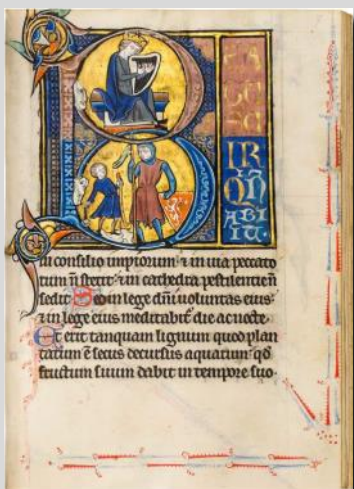 B
IR
ABI
IT
in consilio impiorum ⁊ in uia peccato
rum n̄ stetit: ⁊ in cathedra pestilentie n̄
sedit Sed in lege dn̄i uoluntas eius:
⁊ in lege eius meditabit᷑ die ac nocte
Et erit tanquam lignum quod plan
tatum ē secus decursus aquarum: qd̄
fructum suum dabit in tempore suo·